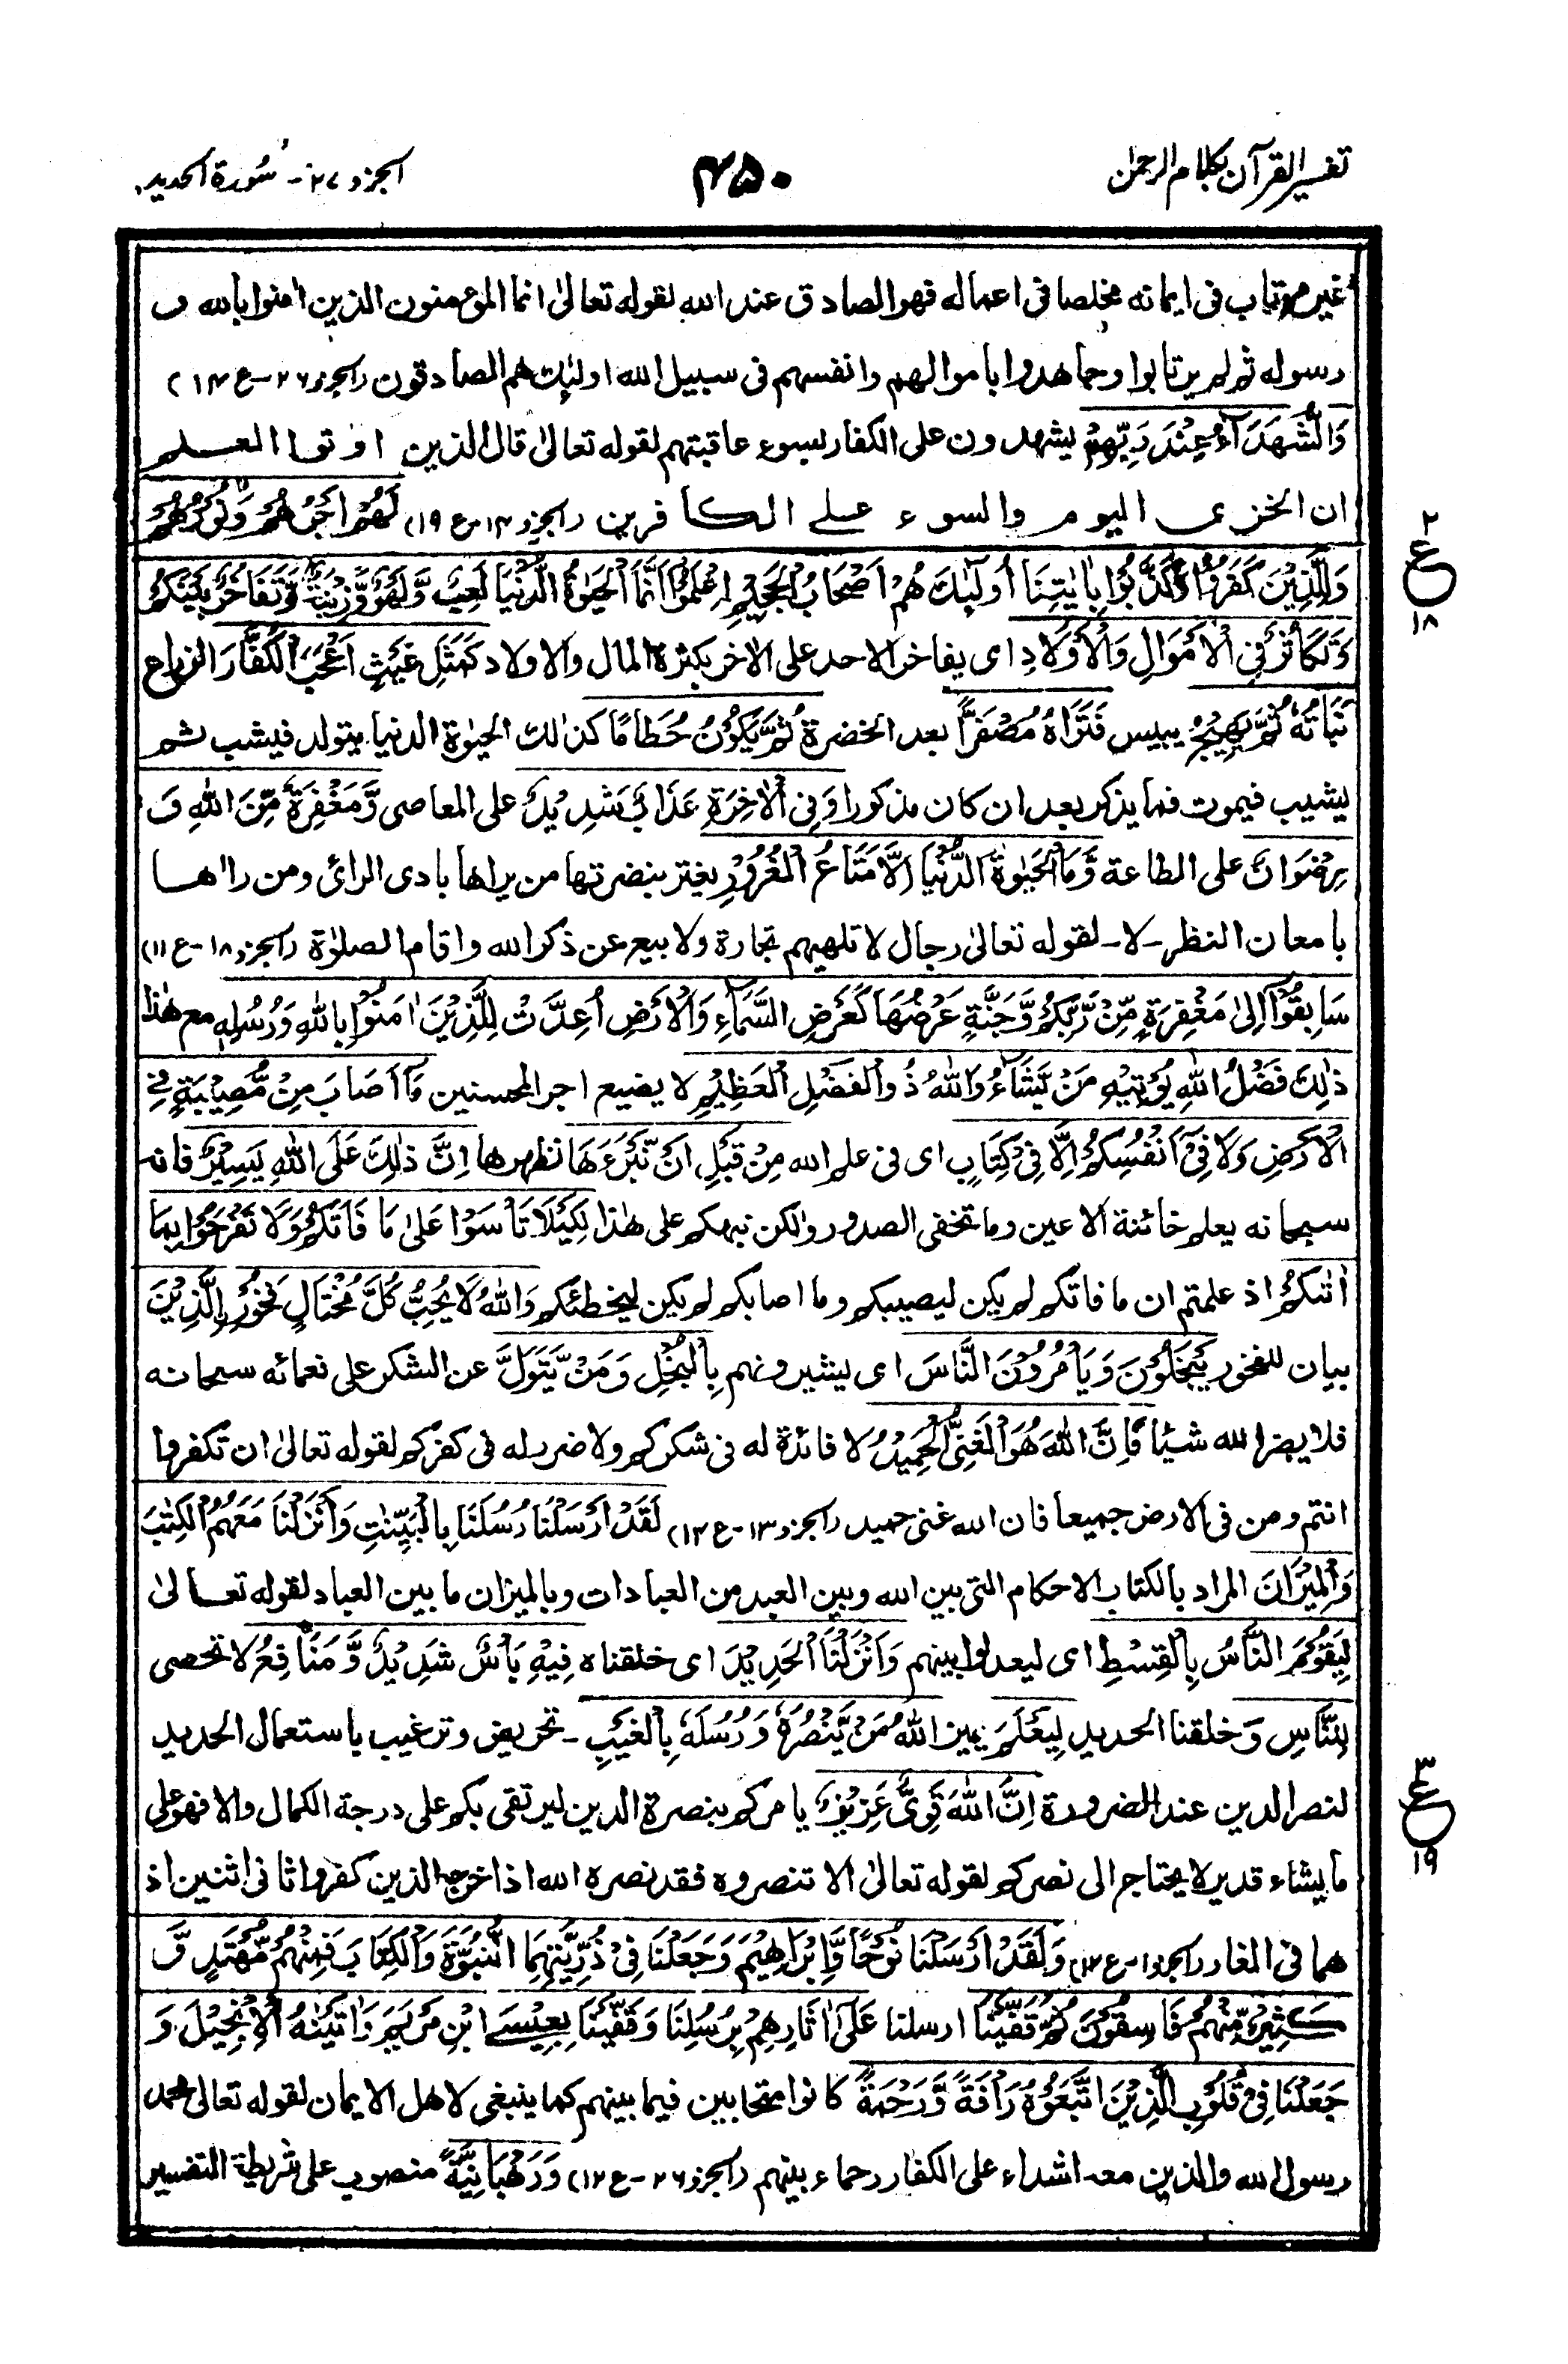 تفسير القرآن بكلام الرحمن
٤٥٠
الجزو ٢٧ - سُورة الحديد
غير مرتاب فى ايمانه مخلصا فى اعماله فهو الصادق عند الله لقوله تعالىٰ انما المؤمنون الذين اٰمنوا بالله و
رسوله ثم لم يرتابوا وجاهدوا باموالهم وانفسهم فى سبيل الله اولٰئك هم الصادقون (الجزو ٢٦-ع ١٤)
وَالشُّهَدَآءُ عِنْدَ رَبِّهِمْ يشهدون على الكفار بسوء عاقبتهم لقوله تعالىٰ قال الذين اوتوا العلم
ان الخزى اليوم والسوء على الكافرين (الجزو ١٤-ع ١٩) لَهُمْ اَجْرُهُمْ وَنُوْرُهُمْ
وَالَّذِيْنَ كَفَرُوْا وَكَذَّبُوْا بِاٰيٰتِنَا اُولٰٓئِكَ هُمْ اَصْحَابُ الْجَحِيْمِ اِعْلَمُوْا اَنَّمَا الْحَيٰوةُ الدُّنْيَا لَعِبٌ وَّلَهْوٌ وَّزِيْنَةٌ وَّتَفَاخُرٌۢ بَيْنَكُمْ
٢
ع
١٨
وَتَكَاثُرٌ فِى الْاَمْوَالِ وَالْاَوْلَادِ اى يفاخر الاحد على الاٰخر بكثرة المال والاولاد كَمَثَلِ غَيْثٍ اَعْجَبَ الْكُفَّارَ الزراع
نَبَاتُهٗ ثُمَّ يَهِيْجُ يبيس فَتَرَاهُ مُصْفَرًّا بعد الخضرة ثُمَّ يَكُوْنُ حُطَامًا كذٰلك الحيٰوة الدنيا يتولد فيشب ثم
يشيب فيموت فما يذكر بعد ان كان مذكورا وَفِى الْاٰخِرَةِ عَذَابٌ شَدِيْدٌ على المعاصى وَّمَغْفِرَةٌ مِّنَ اللهِ وَ
رِضْوَانٌ على الطاعة وَمَا الْحَيٰوةُ الدُّنْيَا اِلَّا مَتَاعُ الْغُرُوْرِ يغتر بنضرتها من يراها بادى الرائى ومن راٰها
بامعان النظر - لا - لقوله تعالىٰ رجال لا تلهيهم تجارة ولا بيع عن ذكر الله واقام الصلوٰة (الجزو ١٨-ع ١١)
سَابِقُوْآ اِلٰى مَغْفِرَةٍ مِّنْ رَّبِّكُمْ وَجَنَّةٍ عَرْضُهَا كَعَرْضِ السَّمَآءِ وَالْاَرْضِ اُعِدَّتْ لِلَّذِيْنَ اٰمَنُوْا بِاللهِ وَرُسُلِهٖ مع هٰذا
ذٰلِكَ فَضْلُ اللهِ يُؤْتِيْهِ مَنْ يَّشَآءُ وَاللهُ ذُو الْفَضْلِ الْعَظِيْمِ لا يضيع اجر المحسنين مَآ اَصَابَ مِنْ مُّصِيْبَةٍ فِى
الْاَرْضِ وَلَا فِىْٓ اَنْفُسِكُمْ اِلَّا فِىْ كِتَابٍ اى فى علم الله مِنْ قَبْلِ اَنْ نَّبْرَءَهَا نظهرها اِنَّ ذٰلِكَ عَلَى اللهِ يَسِيْرٌ فانه
سبحانه يعلم خائنة الاعين وما تخفى الصدور ولكن نبهكم على هٰذا لِكَيْلَا تَأْسَوْا عَلٰى مَا فَاتَكُمْ وَلَا تَفْرَحُوْا بِمَا
اٰتٰىكُمْ اذ علمتم ان ما فاتكم لم يكن ليصيبكم وما اصابكم لم يكن ليخطئكم وَاللهُ لَا يُحِبُّ كُلَّ مُخْتَالٍ فَخُوْرِ اِلَّذِيْنَ
بيان للفخور يَبْخَلُوْنَ وَيَأْمُرُوْنَ النَّاسَ اى يشيرونهم بِالْبُخْلِ وَمَنْ يَّتَوَلَّ عن الشكر على نعمائه سبحانه
فلا يضر الله شيئا فَاِنَّ اللهَ هُوَ الْغَنِىُّ الْحَمِيْدُ لا فائدة له فى شكركم ولا ضر له فى كفركم لقوله تعالىٰ ان تكفروا
انتم ومن فى الارض جميعا فان الله غنى حميد (الجزو ١٣-ع ١٤) لَقَدْ اَرْسَلْنَا رُسُلَنَا بِالْبَيِّنٰتِ وَاَنْزَلْنَا مَعَهُمُ الْكِتٰبَ
وَالْمِيْزَانَ المراد بالكتاب الاحكام التى بين الله وبين العبد من العبادات وبالميزان ما بين العباد لقوله تعالىٰ
لِيَقُوْمَ النَّاسُ بِالْقِسْطِ اى ليعدلوا بينهم وَاَنْزَلْنَا الْحَدِيْدَ اى خلقناه فِيْهِ بَأْسٌ شَدِيْدٌ وَّمَنَافِعُ لا تحصى
لِلنَّاسِ وَ خلقنا الحديد لِيَعْلَمَ يميز اللهُ مَنْ يَّنْصُرُهٗ وَرُسُلَهٗ بِالْغَيْبِ - تحريض وترغيب باستعمال الحديد
لنصر الدين عند الضرورة اِنَّ اللهَ قَوِىٌّ عَزِيْزٌ يامركم بنصرة الدين ليرتقى بكم على درجة الكمال والا فهو على
٣
ع
١٩
ما يشاء قدير لا يحتاج الى نصركم لقوله تعالىٰ الا تنصروه فقد نصره الله اذ اخرجه الذين كفروا ثانى اثنين اذ
هما فى الغار (الجزو ١٠-ع ١٢) وَلَقَدْ اَرْسَلْنَا نُوْحًا وَّاِبْرَاهِيْمَ وَجَعَلْنَا فِىْ ذُرِّيَّتِهِمَا النُّبُوَّةَ وَالْكِتَابَ فَمِنْهُمْ مُّهْتَدٍ وَّ
كَثِيْرٌ مِّنْهُمْ فَاسِقُوْنَ ثُمَّ قَفَّيْنَا ارسلنا عَلٰىٓ اٰثَارِهِمْ بِرُسُلِنَا وَقَفَّيْنَا بِعِيْسَى ابْنِ مَرْيَمَ وَاٰتَيْنٰهُ الْاِنْجِيْلَ وَ
جَعَلْنَا فِىْ قُلُوْبِ الَّذِيْنَ اتَّبَعُوْهُ رَأْفَةً وَّرَحْمَةً كانوا متحابين فيما بينهم كما ينبغى لاهل الايمان لقوله تعالىٰ محمد
رسول الله والذين معه اشداء على الكفار رحماء بينهم (الجزو ٢٦-ع ١٢) وَرَهْبَانِيَّةً منصوب على شريطة التفسير